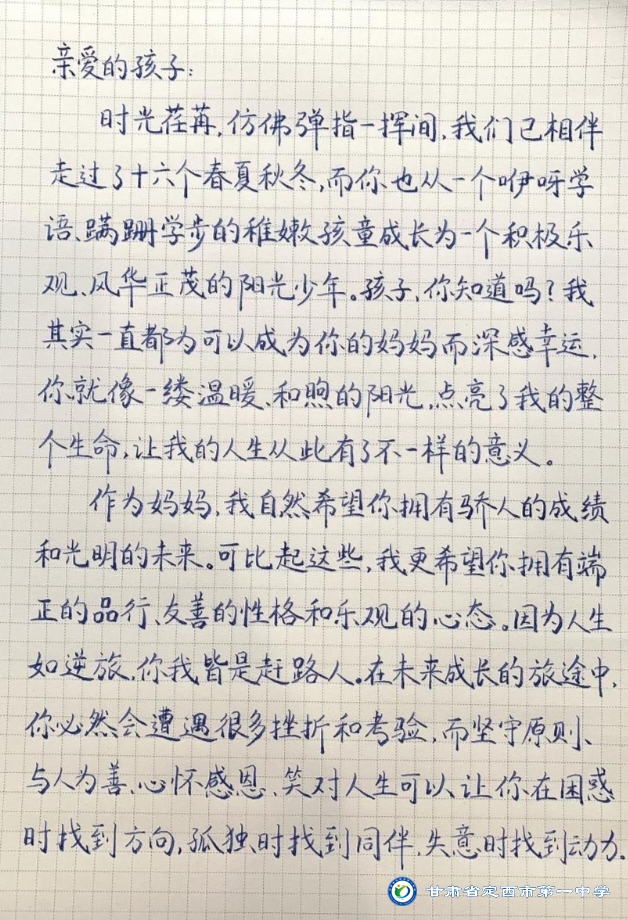 亲爱的孩子:
时光荏苒,仿佛弹指一挥间,我们已相伴
走过了十六个春夏秋冬,而你也从一个咿呀学
语、蹒跚学步的稚嫩孩童成长为一个积极乐
观、风华正茂的阳光少年。孩子,你知道吗?我
其实一直都为可以成为你的妈妈而深感幸运,
你就像一缕温暖、和煦的阳光,点亮了我的整
个生命,让我的人生从此有了不一样的意义。
作为妈妈,我自然希望你拥有骄人的成绩
和光明的未来。可比起这些,我更希望你拥有端
正的品行、友善的性格和乐观的心态。因为人生
如逆旅,你我皆是赶路人。在未来成长的旅途中,
你必然会遭遇很多挫折和考验,而坚守原则、
与人为善、心怀感恩、笑对人生可以让你在困惑
时找到方向,孤独时找到同伴,失意时找到动力.
甘肃省定西市第一中学